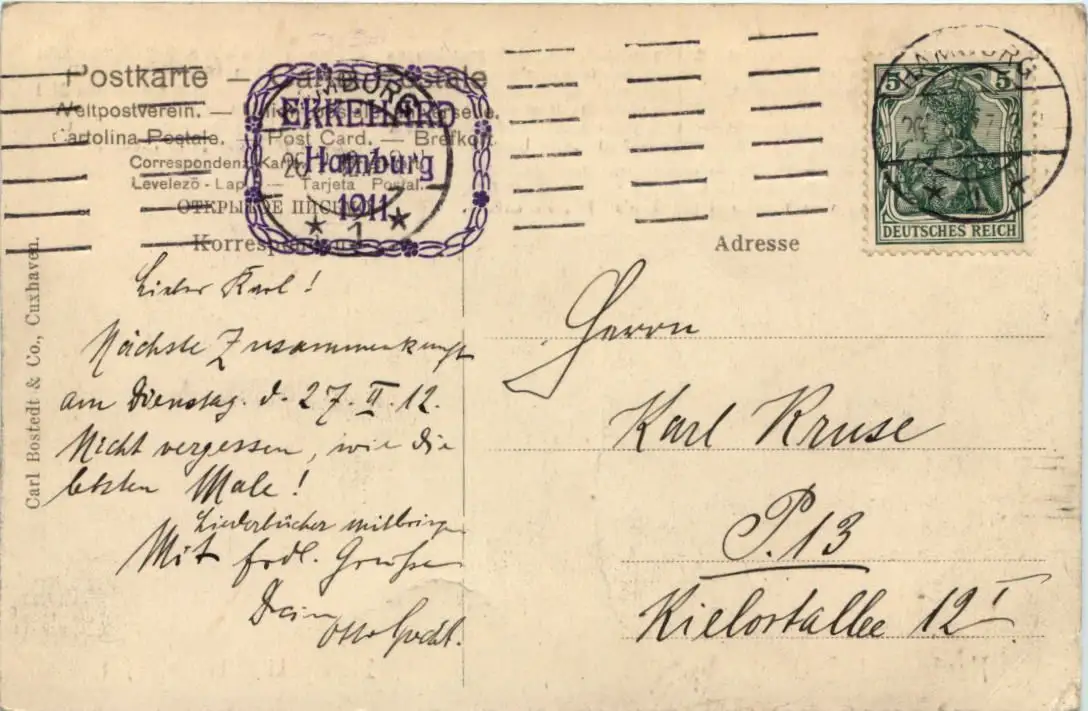 Postkarte — Carte Postale
Weltpostverein. —
Cartolina Postale. — Post Card. — Brefkort
Correspondenz Karte
Levelező - Lap — Tarjeta Postal.
ОТКРЫТОЕ ПИСЬМО
Korrespondenz
EKKEHARD
Hamburg
1911
HAMBURG
1
Adresse
5 5
DEUTSCHES REICH
HAMBURG
1
Carl Bostedt & Co., Cuxhaven.
Lieber Karl!
Nächste Zusammenkunft
am Dienstag. d. 27. II. 12.
Nicht vergessen, wie die
letzten Male!
Liederbücher mitbringen
Mit frdl. Grüßen
Dein
Otto
Herrn
Karl Kruse
P. 13
Kielortallee 12 I